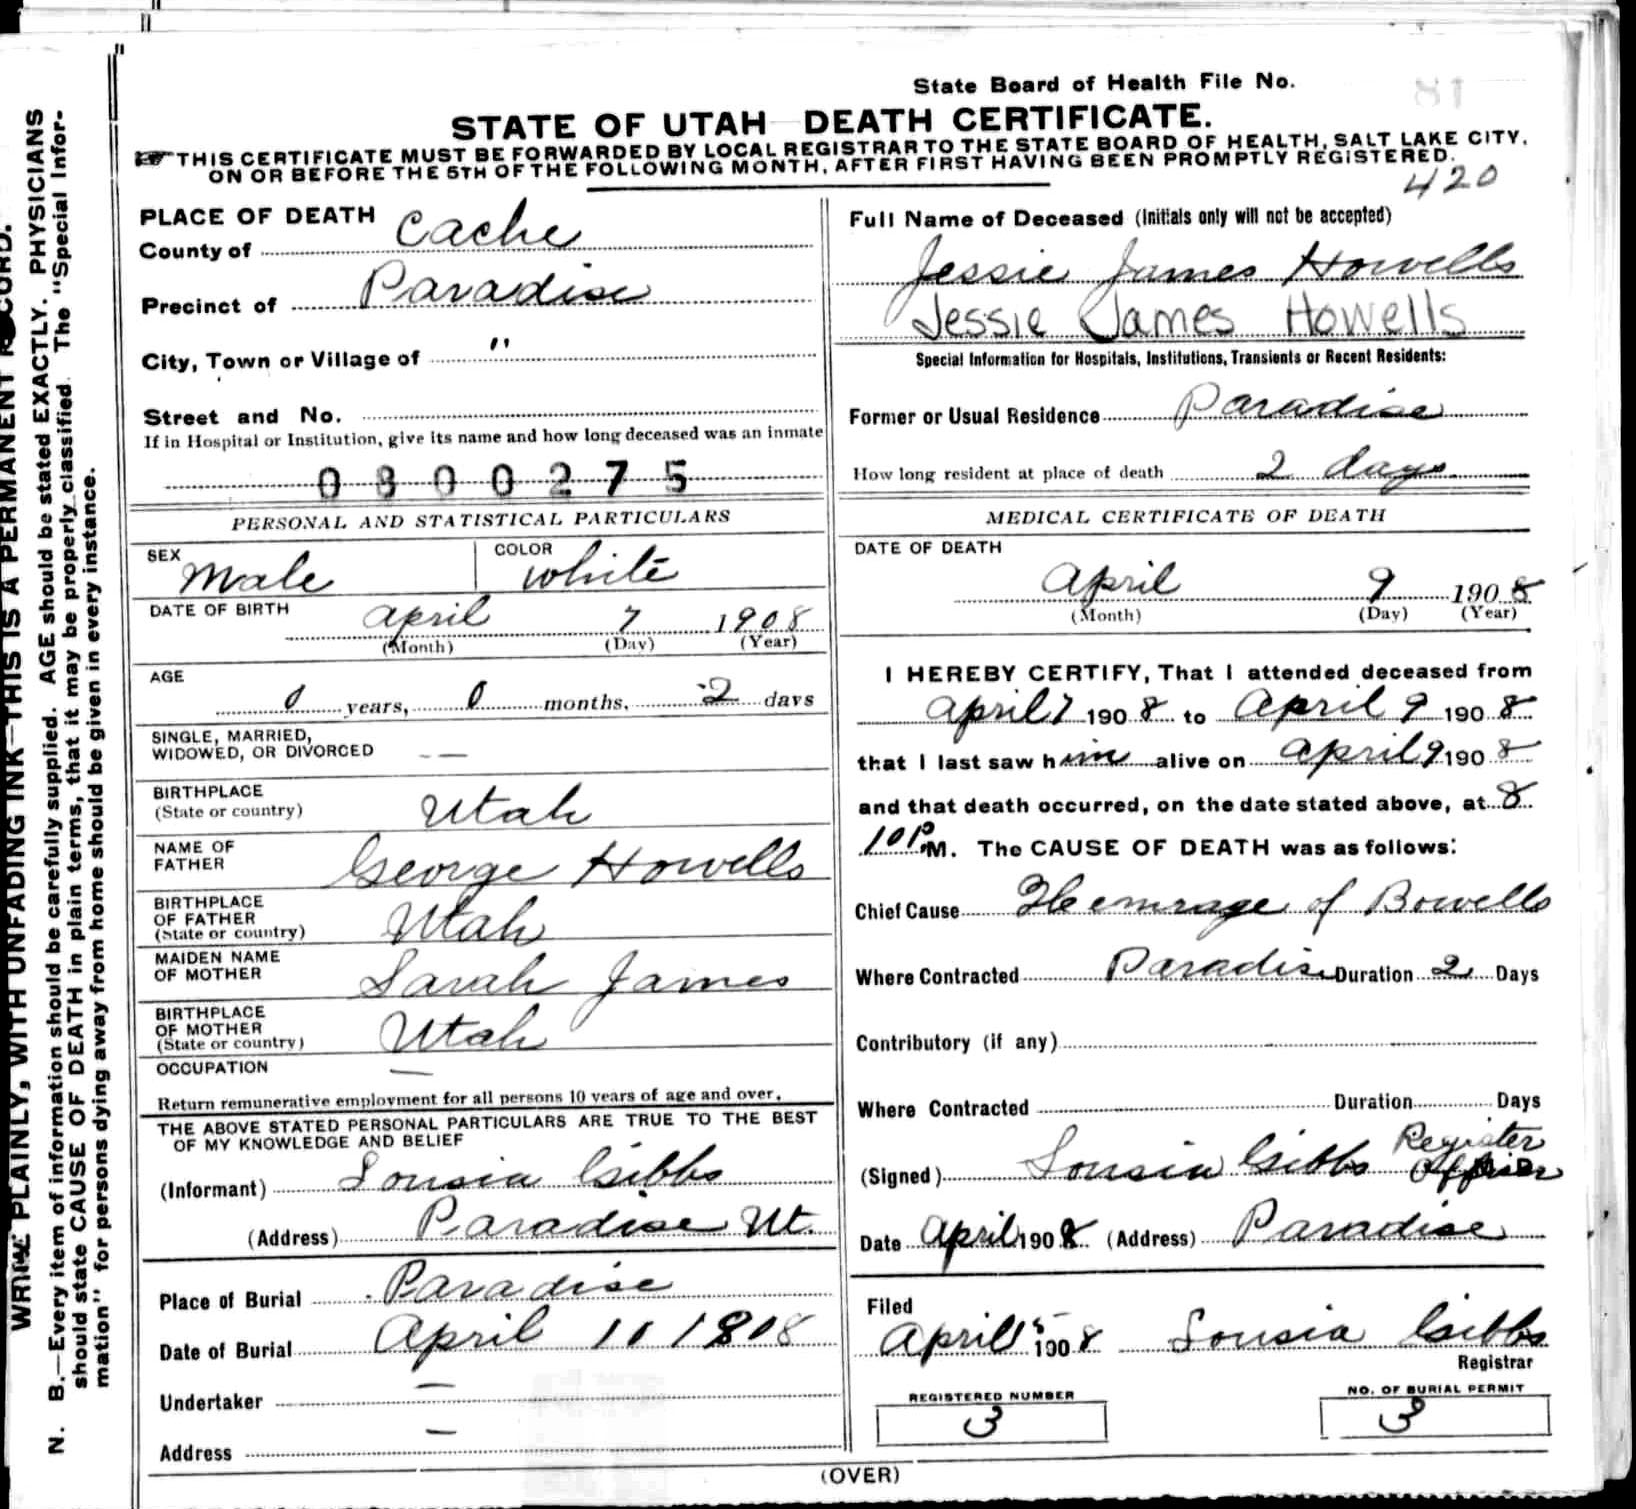 State Board of Health File No. 81
STATE OF UTAH DEATH CERTIFICATE.
THIS CERTIFICATE MUST BE FORWARDED BY LOCAL REGISTRAR TO THE STATE BOARD OF HEALTH, SALT LAKE CITY,
ON OR BEFORE THE 5TH OF THE FOLLOWING MONTH, AFTER FIRST HAVING BEEN PROMPTLY REGISTERED.
420
PLACE OF DEATH
County of Cache
Precinct of Paradise
City, Town or Village of "
Street and No.
If in Hospital or Institution, give its name and how long deceased was an inmate
0800275
PERSONAL AND STATISTICAL PARTICULARS
SEX Male COLOR White
DATE OF BIRTH April 7 1908
(Month) (Day) (Year)
AGE
0 years, 0 months, 2 days
SINGLE, MARRIED,
WIDOWED, OR DIVORCED — —
BIRTHPLACE
(State or country) Utah
NAME OF
FATHER George Howells
BIRTHPLACE
OF FATHER
(State or country) Utah
MAIDEN NAME
OF MOTHER Sarah James
BIRTHPLACE
OF MOTHER
(State or country) Utah
OCCUPATION —
Return remunerative employment for all persons 10 years of age and over.
THE ABOVE STATED PERSONAL PARTICULARS ARE TRUE TO THE BEST
OF MY KNOWLEDGE AND BELIEF
(Informant) Lousia Gibbs
(Address) Paradise Ut.
Place of Burial Paradise
Date of Burial April 10 1908
Undertaker —
Address —
Full Name of Deceased (Initials only will not be accepted)
Jessie James Howells
Jessie James Howells
Special Information for Hospitals, Institutions, Transients or Recent Residents:
Former or Usual Residence Paradise
How long resident at place of death 2 days
MEDICAL CERTIFICATE OF DEATH
DATE OF DEATH
April 9 1908
(Month) (Day) (Year)
I HEREBY CERTIFY, That I attended deceased from
April 7 1908 to April 9 1908
that I last saw him alive on April 9 1908
and that death occurred, on the date stated above, at 8
10 P M. The CAUSE OF DEATH was as follows:
Chief Cause Hemrage of Bowells
Where Contracted Paradise Duration 2 Days
Contributory (if any)
Where Contracted Duration Days
(Signed) Lousia Gibbs Register
Date April 1908 (Address) Paradise
Filed
April 15 1908 Lousia Gibbs
Registrar
REGISTERED NUMBER
3
NO. OF BURIAL PERMIT
3
(OVER)
WRITE PLAINLY, WITH UNFADING INK—THIS IS A PERMANENT RECORD.
N. B.—Every item of information should be carefully supplied. AGE should be stated EXACTLY. PHYSICIANS
should state CAUSE OF DEATH in plain terms, that it may be properly classified. The "Special Infor-
mation" for persons dying away from home should be given in every instance.